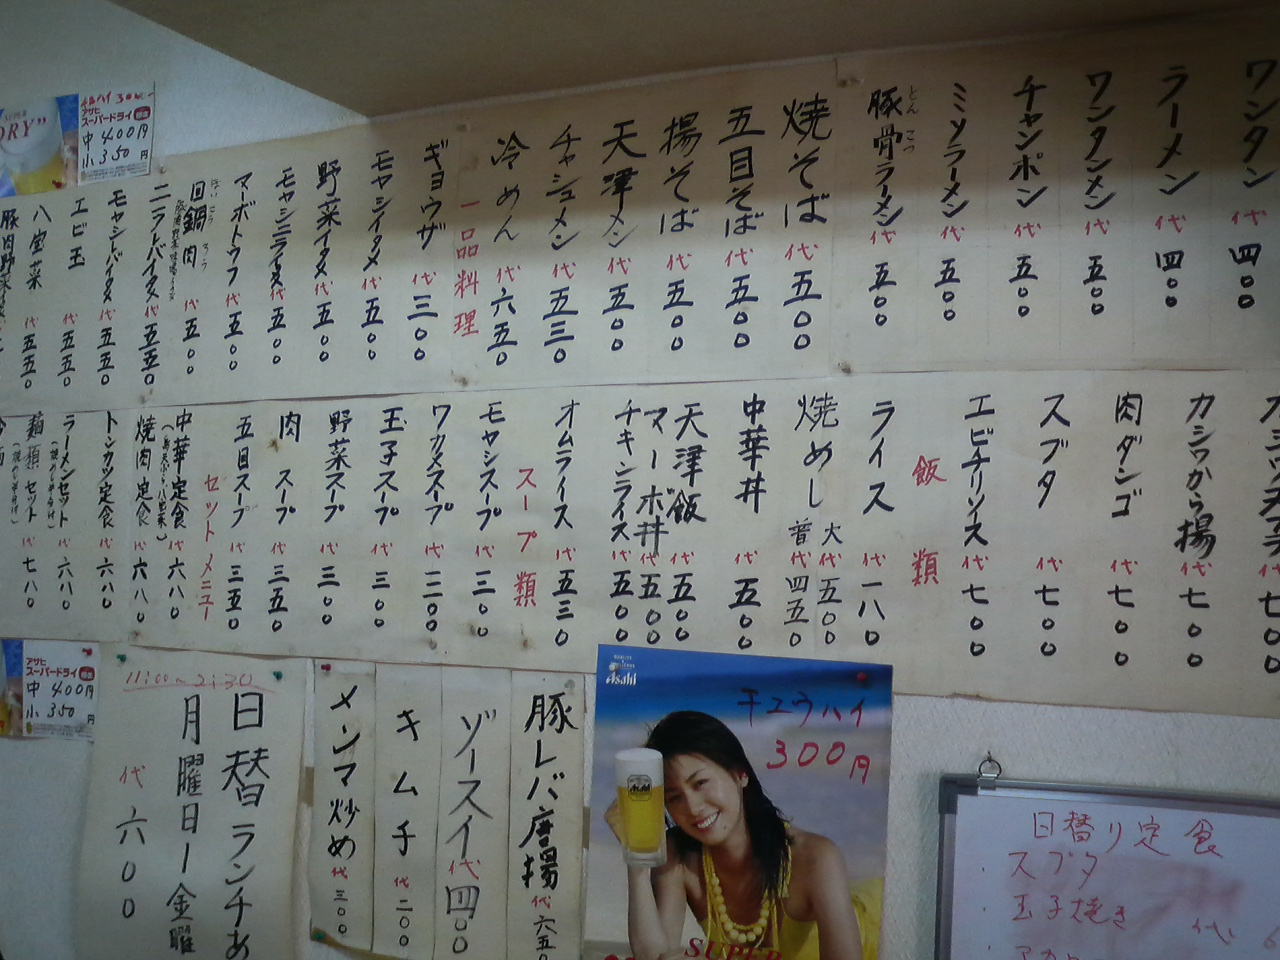 ワンタン 代 四〇〇
ラーメン 代 四〇〇
ワンタンメン 代 五〇〇
チャンポン 代 五〇〇
ミソラーメン 代 五〇〇
豚骨ラーメン 代 五〇〇
とん こつ
焼そば 代 五〇〇
五目そば 代 五〇〇
揚そば 代 五〇〇
天津メン 代 五〇〇
チャシュメン 代 五三〇
冷めん 代 六五〇
一品料理
ギョウザ 代 三〇〇
モヤシイタメ 代 五〇〇
野菜イタメ 代 五〇〇
モヤシニライタメ 代 五〇〇
マーボトウフ 代 五〇〇
回鍋肉 代 五〇〇
ほい こう ろう
ニラレバイタメ 代 五五〇
モヤシレバイタメ 代 五五〇
エビ玉 代 五五〇
八宝菜 代 五五〇
豚肉野菜
カシワから揚 代 七〇〇
肉ダンゴ 代 七〇〇
スブタ 代 七〇〇
エビチリソース 代 七〇〇
飯類
ライス 代 一八〇
焼めし 大 代 五〇〇
普 代 四五〇
中華丼 代 五〇〇
天津飯 代 五〇〇
マーボ丼 代 五〇〇
チキンライス 代 五〇〇
オムライス 代 五三〇
スープ類
モヤシスープ 代 三〇〇
ワカメスープ 代 三〇〇
玉子スープ 代 三〇〇
野菜スープ 代 三〇〇
肉スープ 代 三五〇
五目スープ 代 三五〇
セットメニュー
中華定食 代 六八〇
焼肉定食 代 六八〇
トンカツ定食 代 六八〇
ラーメンセット 代 六八〇
麺類セット 代 七八〇
DRY"
酎ハイ 300
アサヒ
スーパードライ
中 400円
小 350円
アサヒ
スーパードライ
中 400円
小 350円
11:00〜2:30
日替ランチあ
月曜日ー金曜
代 六〇〇
メンマ炒め 代 三〇〇
キムチ 代 二〇〇
ゾースイ 代 四〇〇
豚レバ唐揚 代 六五〇
Asahi
チュウハイ
300円
SUPER
日替り定食
・スブタ
・玉子焼き
代 6